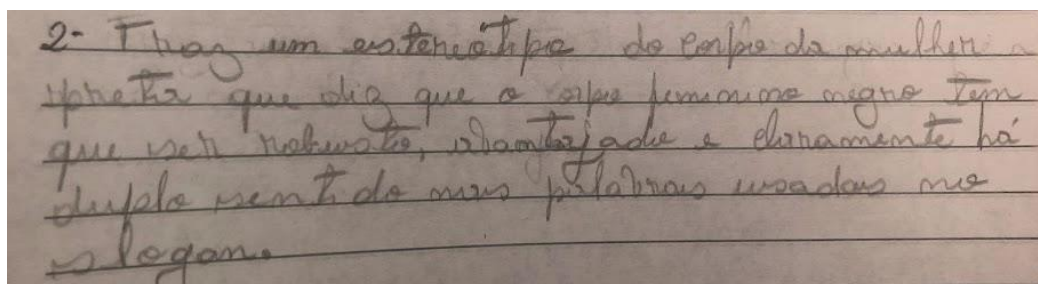 2- Traz um estereótipo do corpo da mulher
preta que diz que o corpo feminino negro tem
que ser robusto, avantajado e claramente há
duplo sentido nas palavras usadas no
slogan.